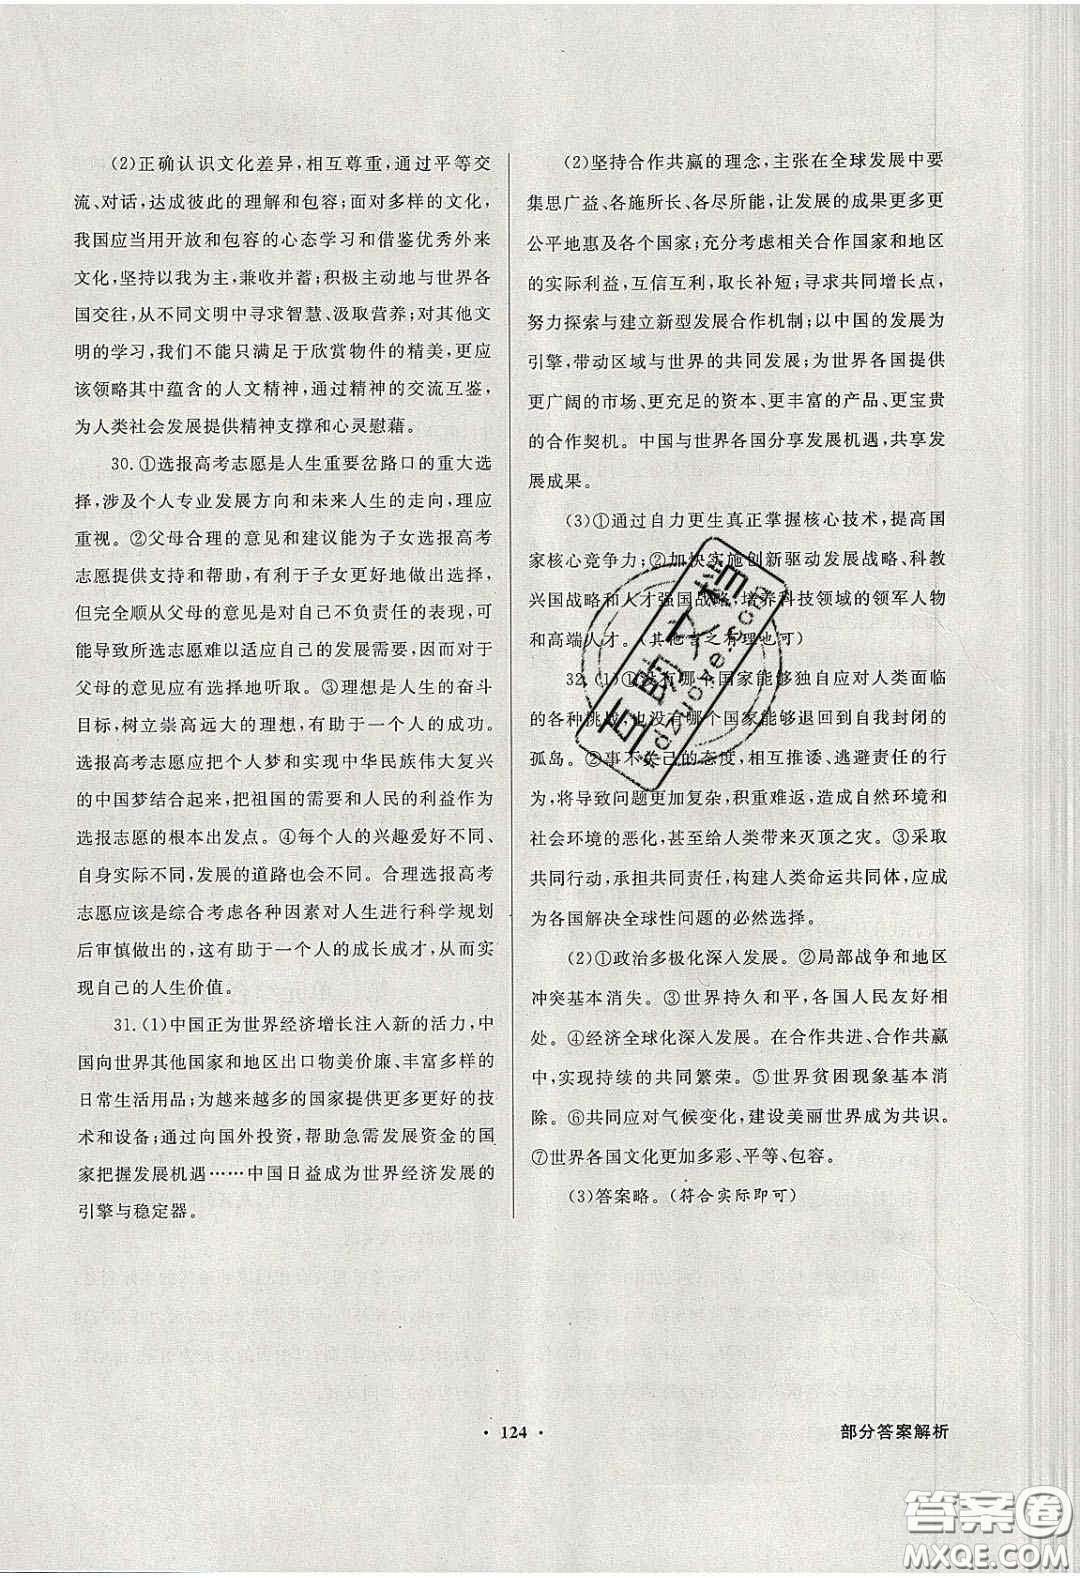 (2)正确认识文化差异,相互尊重,通过平等交
流、对话,达成彼此的理解和包容;面对多样的文化,
我国应当用开放和包容的心态学习和借鉴优秀外来
文化,坚持以我为主,兼收并蓄;积极主动地与世界各
国交往,从不同文明中寻求智慧、汲取营养;对其他文
明的学习,我们不能只满足于欣赏物件的精美,更应
该领略其中蕴含的人文精神,通过精神的交流互鉴,
为人类社会发展提供精神支撑和心灵慰藉。
30.①选报高考志愿是人生重要岔路口的重大选
择,涉及个人专业发展方向和未来人生的走向,理应
重视。②父母合理的意见和建议能为子女选报高考
志愿提供支持和帮助,有利于子女更好地做出选择,
但完全顺从父母的意见是对自己不负责任的表现,可
能导致所选志愿难以适应自己的发展需要,因而对于
父母的意见应有选择地听取。③理想是人生的奋斗
目标,树立崇高远大的理想,有助于一个人的成功。
选报高考志愿应把个人梦和实现中华民族伟大复兴
的中国梦结合起来,把祖国的需要和人民的利益作为
选报志愿的根本出发点。④每个人的兴趣爱好不同、
自身实际不同,发展的道路也会不同。合理选报高考
志愿应该是综合考虑各种因素对人生进行科学规划
后审慎做出的,这有助于一个人的成长成才,从而实
现自己的人生价值。
31.(1)中国正为世界经济增长注入新的活力,中
国向世界其他国家和地区出口物美价廉、丰富多样的
日常生活用品;为越来越多的国家提供更多更好的技
术和设备;通过向国外投资,帮助急需发展资金的国
家把握发展机遇……中国日益成为世界经济发展的
引擎与稳定器。
(2)坚持合作共赢的理念,主张在全球发展中要
集思广益、各施所长、各尽所能,让发展的成果更多更
公平地惠及各个国家;充分考虑相关合作国家和地区
的实际利益,互信互利,取长补短;寻求共同增长点,
努力探索与建立新型发展合作机制;以中国的发展为
引擎,带动区域与世界的共同发展;为世界各国提供
更广阔的市场、更充足的资本、更丰富的产品、更宝贵
的合作契机。中国与世界各国分享发展机遇,共享发
展成果。
(3)①通过自力更生真正掌握核心技术,提高国
家核心竞争力;②加快实施创新驱动发展战略、科教
兴国战略和人才强国战略,培养科技领域的领军人物
和高端人才。(其他言之有理也可)
32.(1)①没有哪个国家能够独自应对人类面临
的各种挑战,也没有哪个国家能够退回到自我封闭的
孤岛。②事不关己的态度,相互推诿、逃避责任的行
为,将导致问题更加复杂,积重难返,造成自然环境和
社会环境的恶化,甚至给人类带来灭顶之灾。③采取
共同行动,承担共同责任,构建人类命运共同体,应成
为各国解决全球性问题的必然选择。
(2)①政治多极化深入发展。②局部战争和地区
冲突基本消失。③世界持久和平,各国人民友好相
处。④经济全球化深入发展。在合作共进、合作共赢
中,实现持续的共同繁荣。⑤世界贫困现象基本消
除。⑥共同应对气候变化,建设美丽世界成为共识。
⑦世界各国文化更加多彩、平等、包容。
(3)答案略。(符合实际即可)
· 124 ·
部分答案解析
答案圈
MXQE.COM